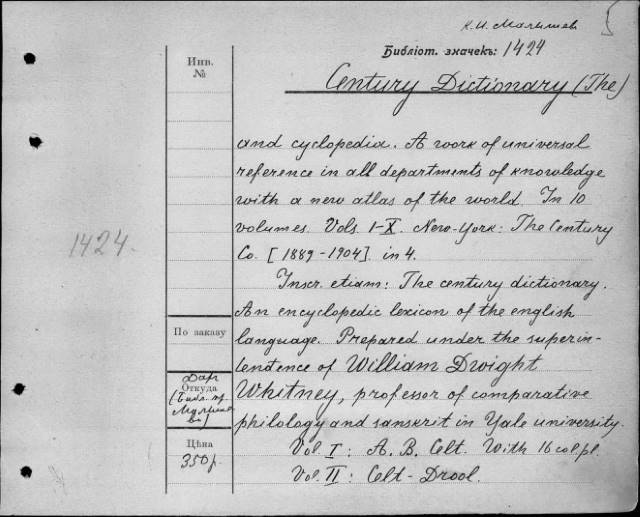 К. И. Малышев
Библіот. значекъ: 1424
Инв.
№
Century Dictionary (The)
and cyclopedia. A work of universal
reference in all departments of knowledge
with a new atlas of the world. In 10
volumes. Vols. I-X. New-York: The Century
1424.
Co. [1889-1904]. in 4.
Inscr. etiam: The century dictionary.
An encyclopedic lexicon of the english
По заказу
language. Prepared under the superin-
tendence of William Dwight
Даръ
Откуда
Whitney, professor of comparative
philology and sanskrit in Yale university.
Цѣна
350 р.
Vol. I: A. B. Celt. With 16 col. pl.
Vol. II: Celt-Drool.